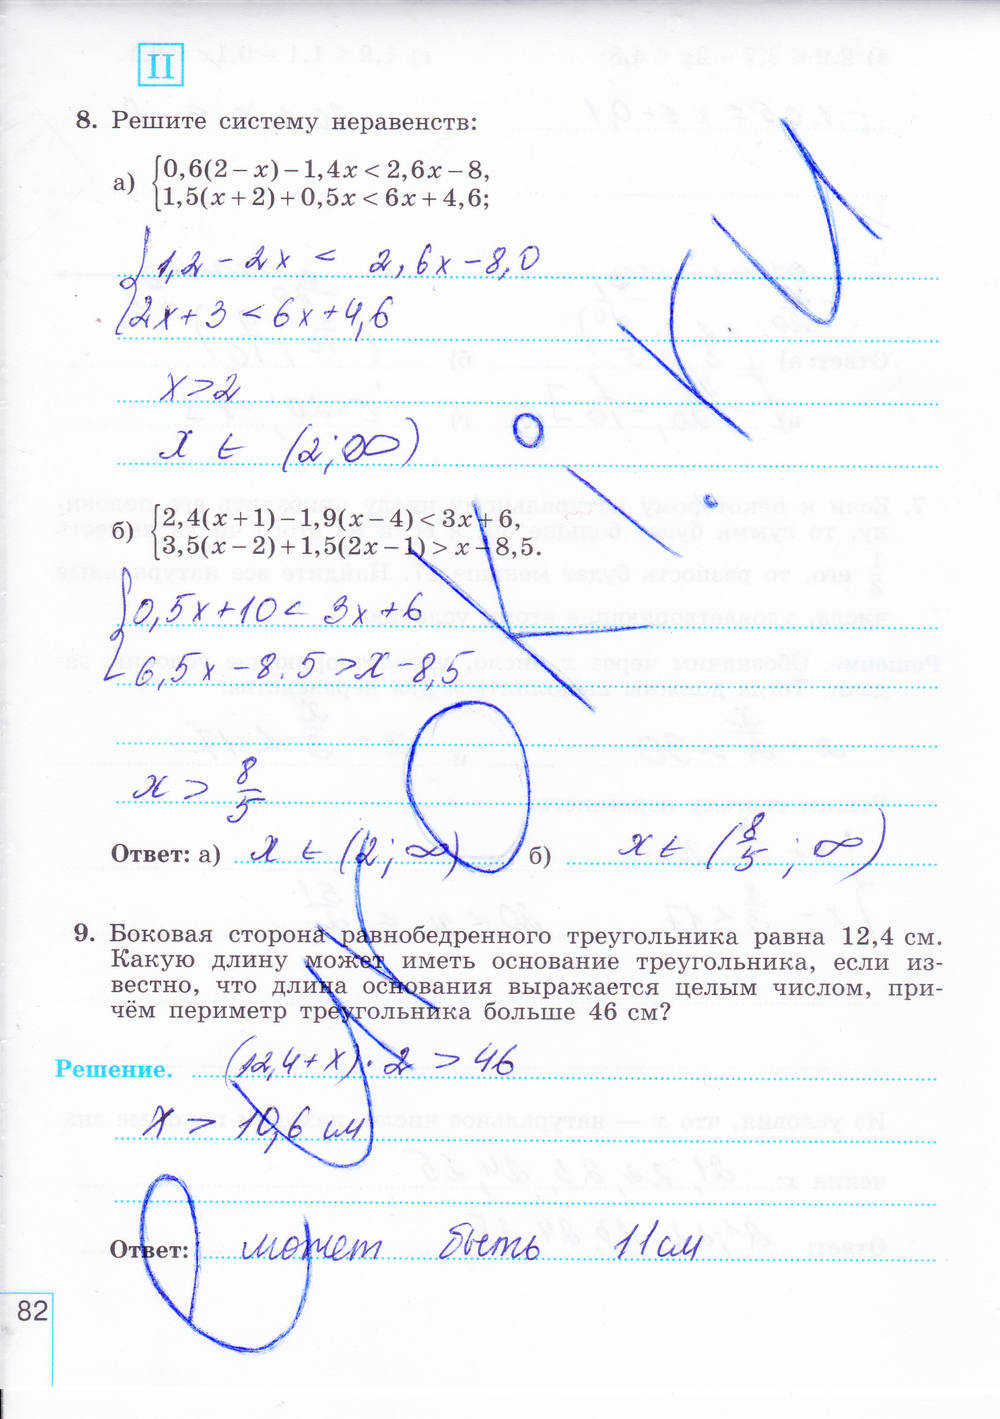 II
8. Решите систему неравенств:
а) {0,6(2 − x) − 1,4x < 2,6x − 8,
1,5(x + 2) + 0,5x < 6x + 4,6;
{1,2 − 2x < 2,6x − 8,0
2x + 3 < 6x + 4,6
x > 2
x ∈ (2; ∞)
б) {2,4(x + 1) − 1,9(x − 4) < 3x + 6,
3,5(x − 2) + 1,5(2x − 1) > x − 8,5.
{0,5x + 10 < 3x + 6
6,5x − 8.5 > x − 8,5
x > 8/5
Ответ: а) x ∈ (2; ∞) б) x ∈ (8/5; ∞)
9. Боковая сторона равнобедренного треугольника равна 12,4 см.
Какую длину может иметь основание треугольника, если из-
вестно, что длина основания выражается целым числом, при-
чём периметр треугольника больше 46 см?
Решение. (12,4 + x) · 2 > 46
x > 10,6 см
Ответ: может быть 11 см
82